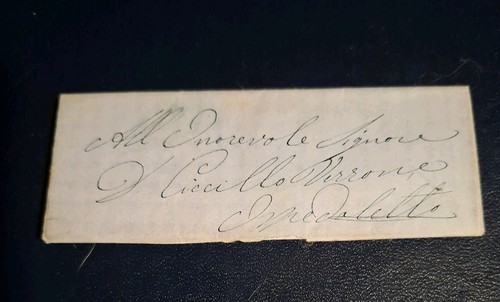 All Onorevole Signore
D Ciccillo Verrone
Ospedaletto